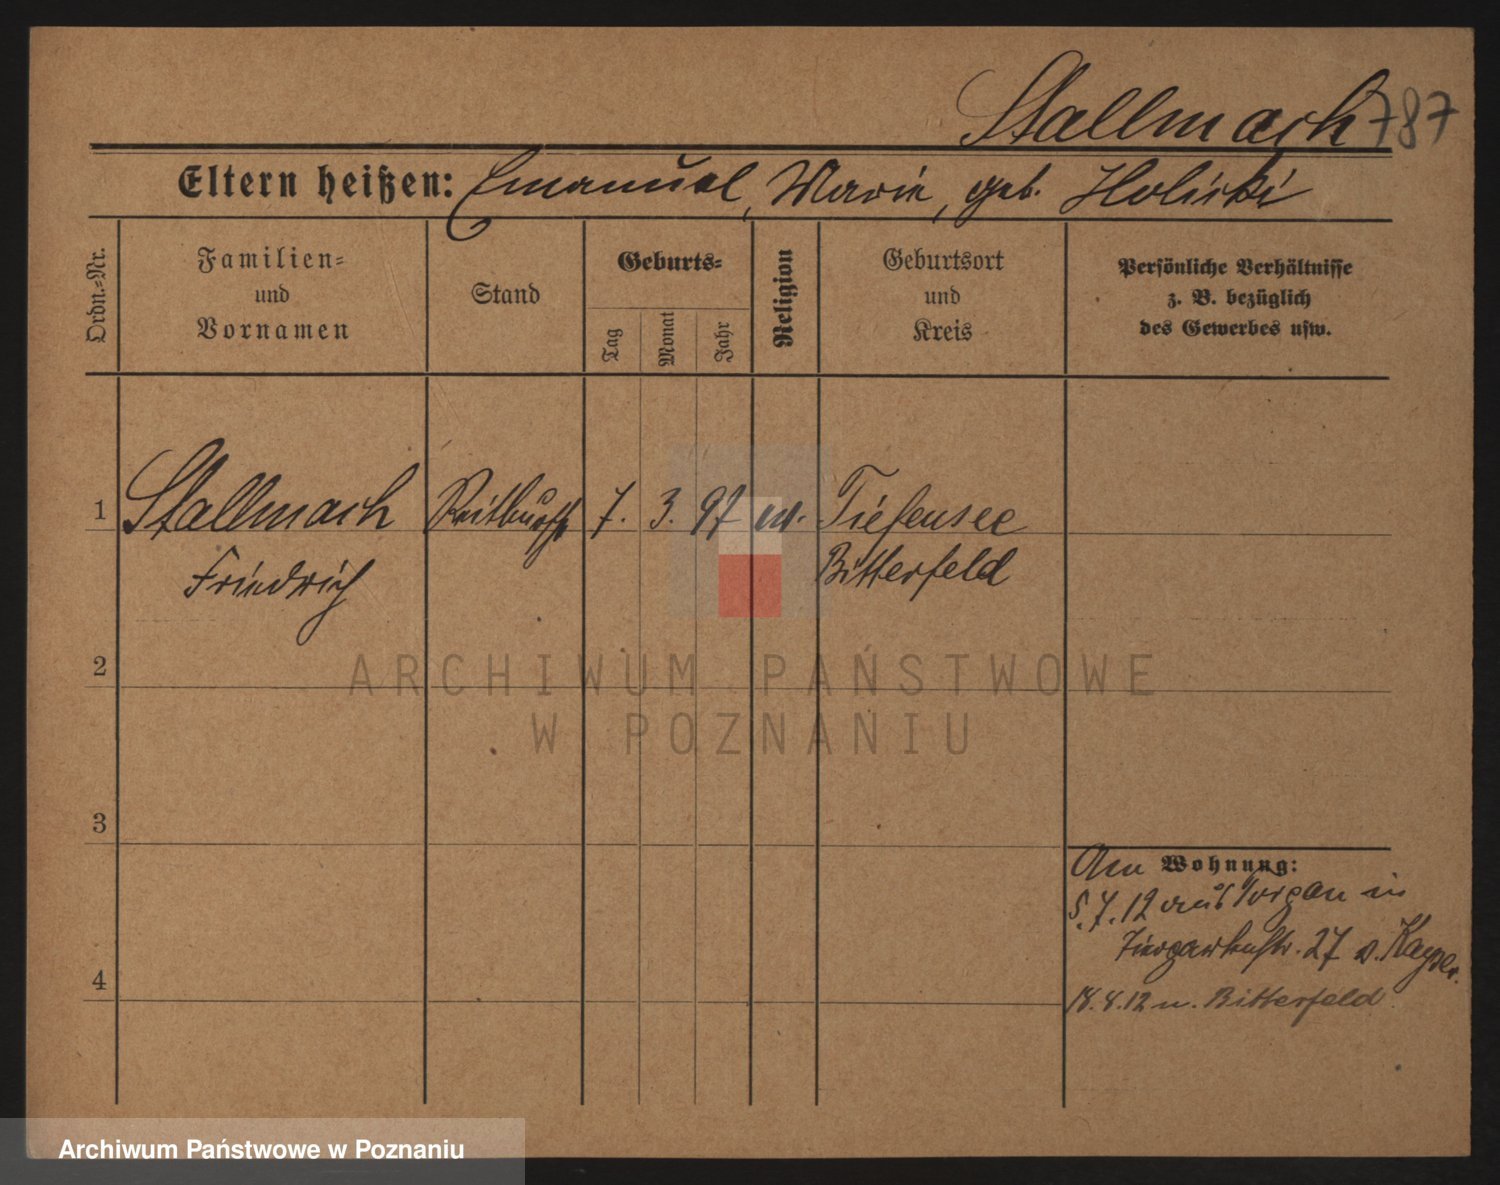 Stallmach 787
Eltern heißen: Emanuel, Marie, geb. Holicki
Ordn.-Nr.
Familien-
und
Vornamen
Stand
Geburts-
Tag
Monat
Jahr
Religion
Geburtsort
und
Kreis
Persönliche Verhältnisse
z. B. bezüglich
des Gewerbes usw.
1 Stallmach 7. 3. 97 Tiefensee
Friedrich Bitterfeld
2
3
4
Am Wohnung:
5.7.12 aus Torgau in
Tiergartenstr. 27 v. Kayser.
18.8.12 n. Bitterfeld
ARCHIWUM PAŃSTWOWE
W POZNANIU
Archiwum Państwowe w Poznaniu